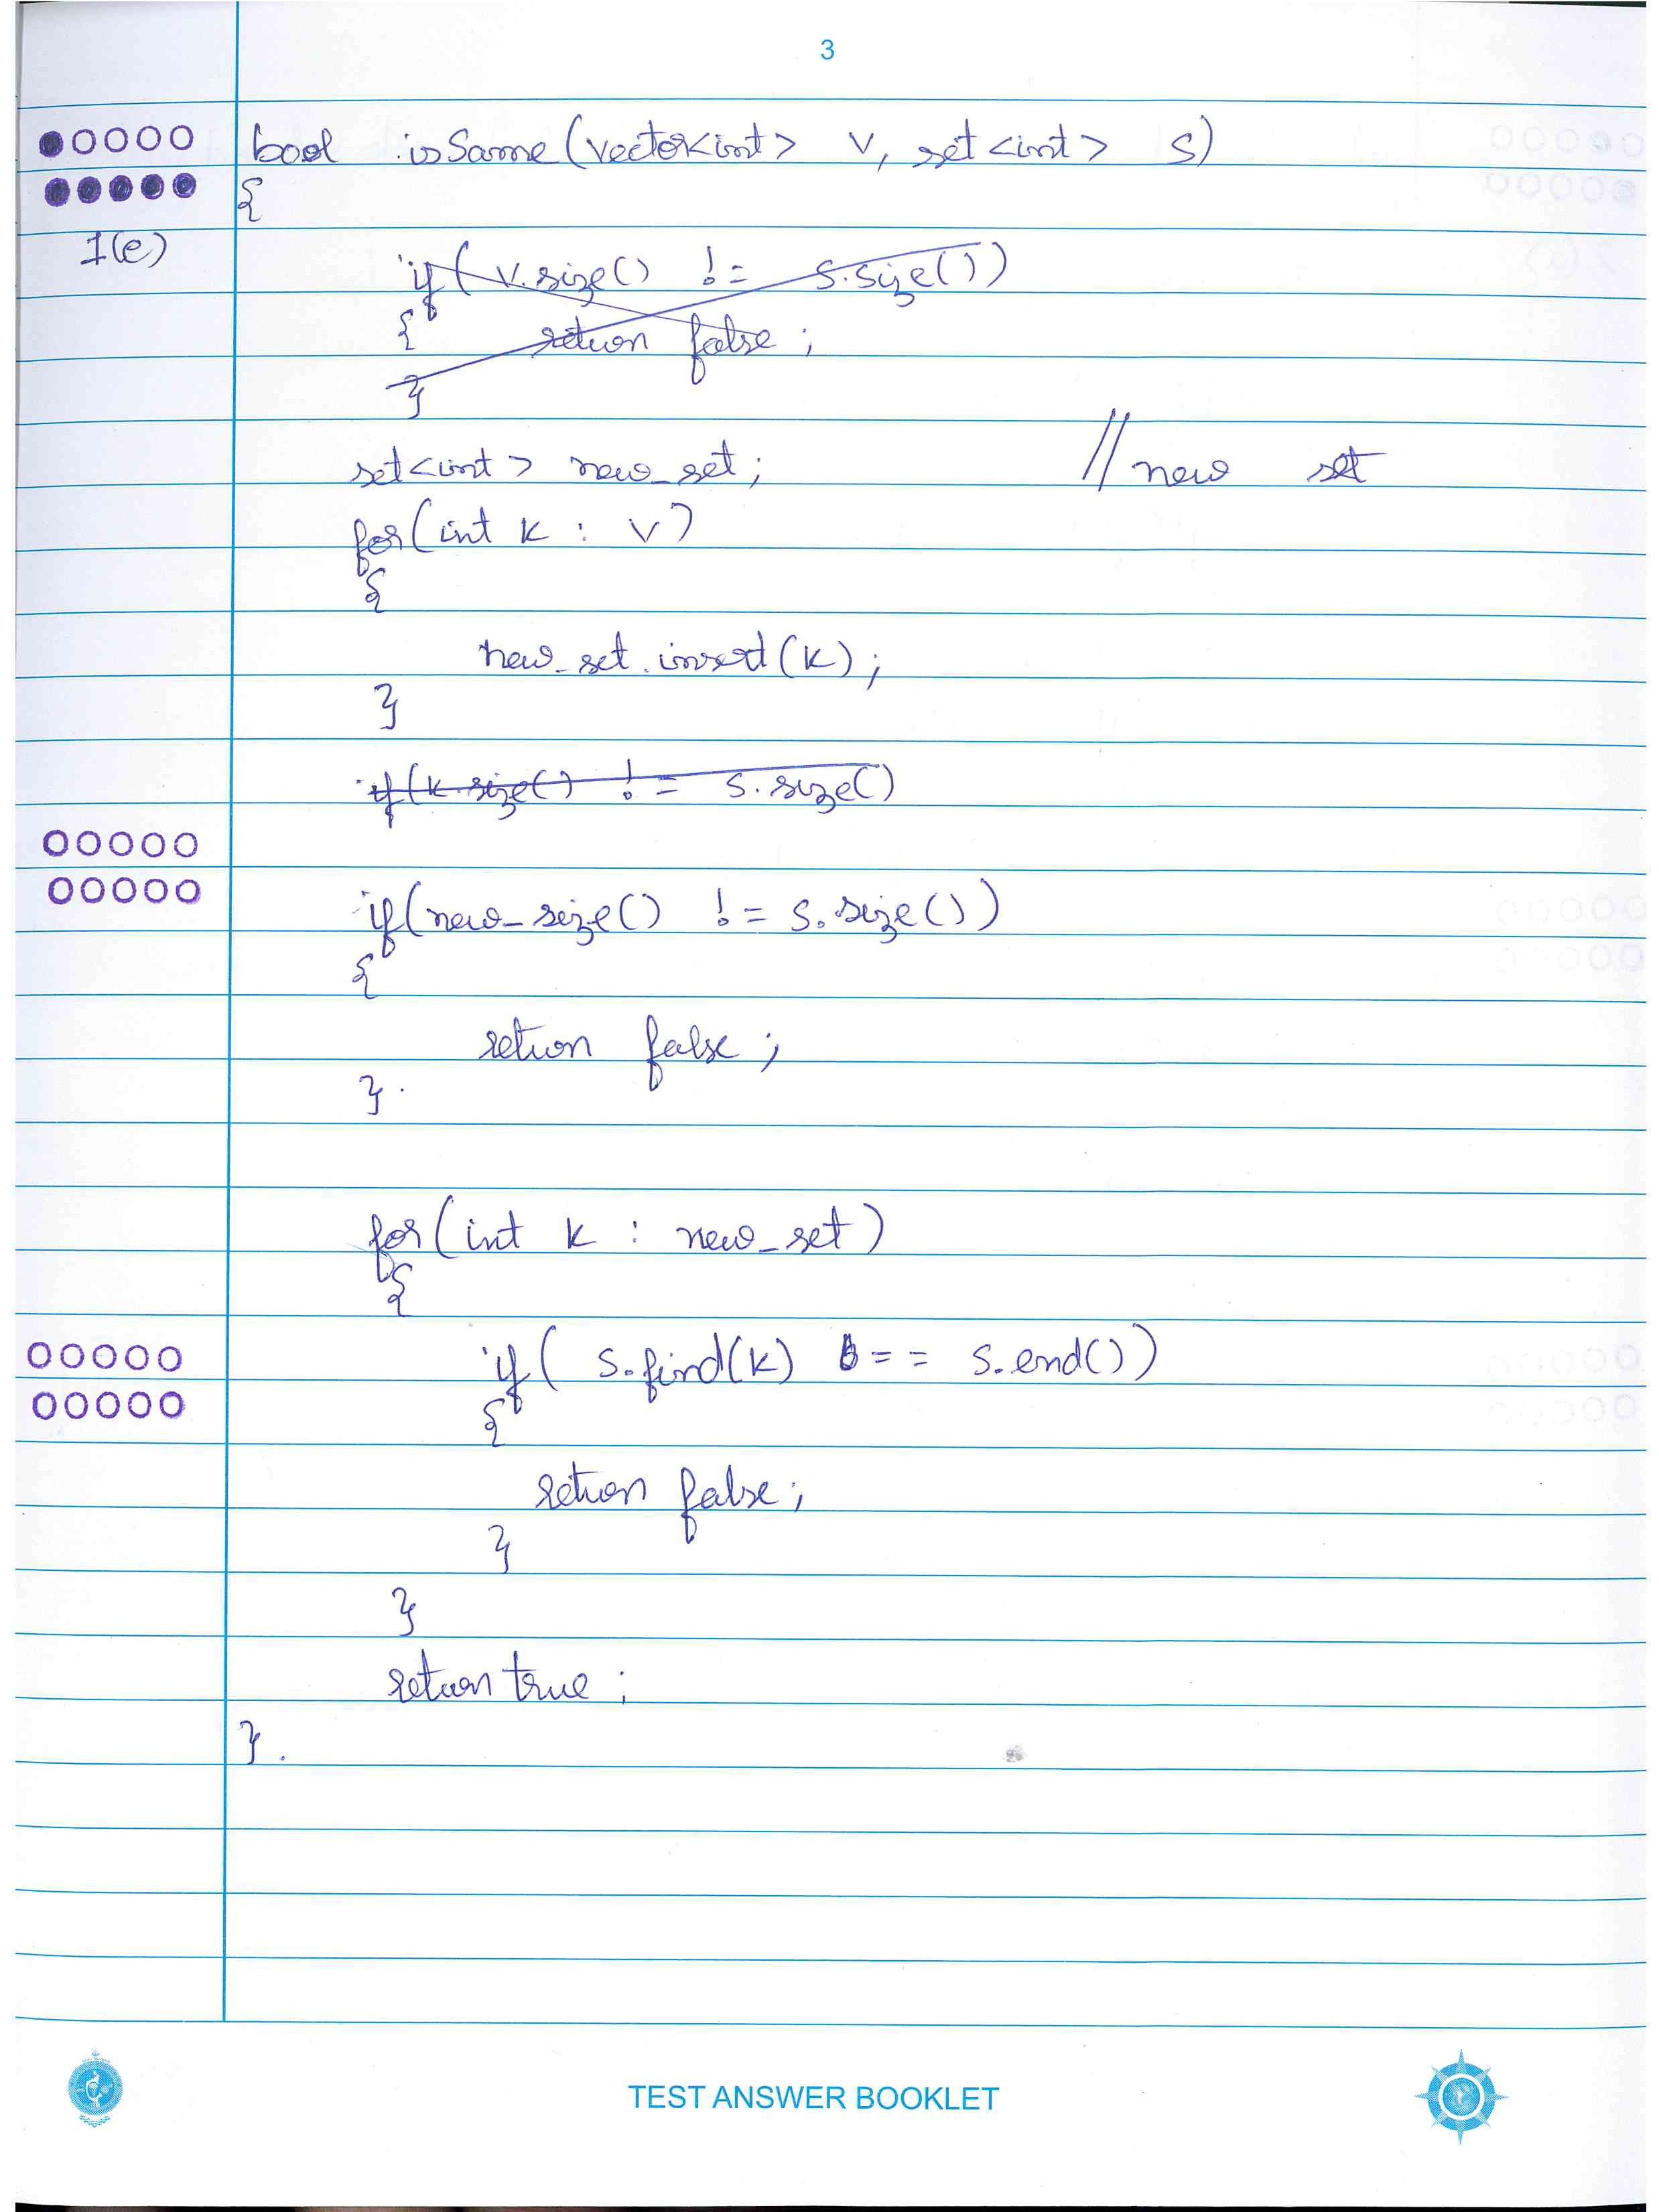 3
bool isSame(vector<int> v, set<int> s)
{
1(e)
if(v.size() != s.size())
{ return false;
}
set<int> new_set; //new set
for(int k : v)
{
new_set.insert(k);
}
if(k.size() != s.size()
if(new_size() != s.size())
{
return false;
}.
for(int k : new_set)
{
if( s.find(k) == s.end())
{
return false;
}
}
return true;
}.
TEST ANSWER BOOKLET